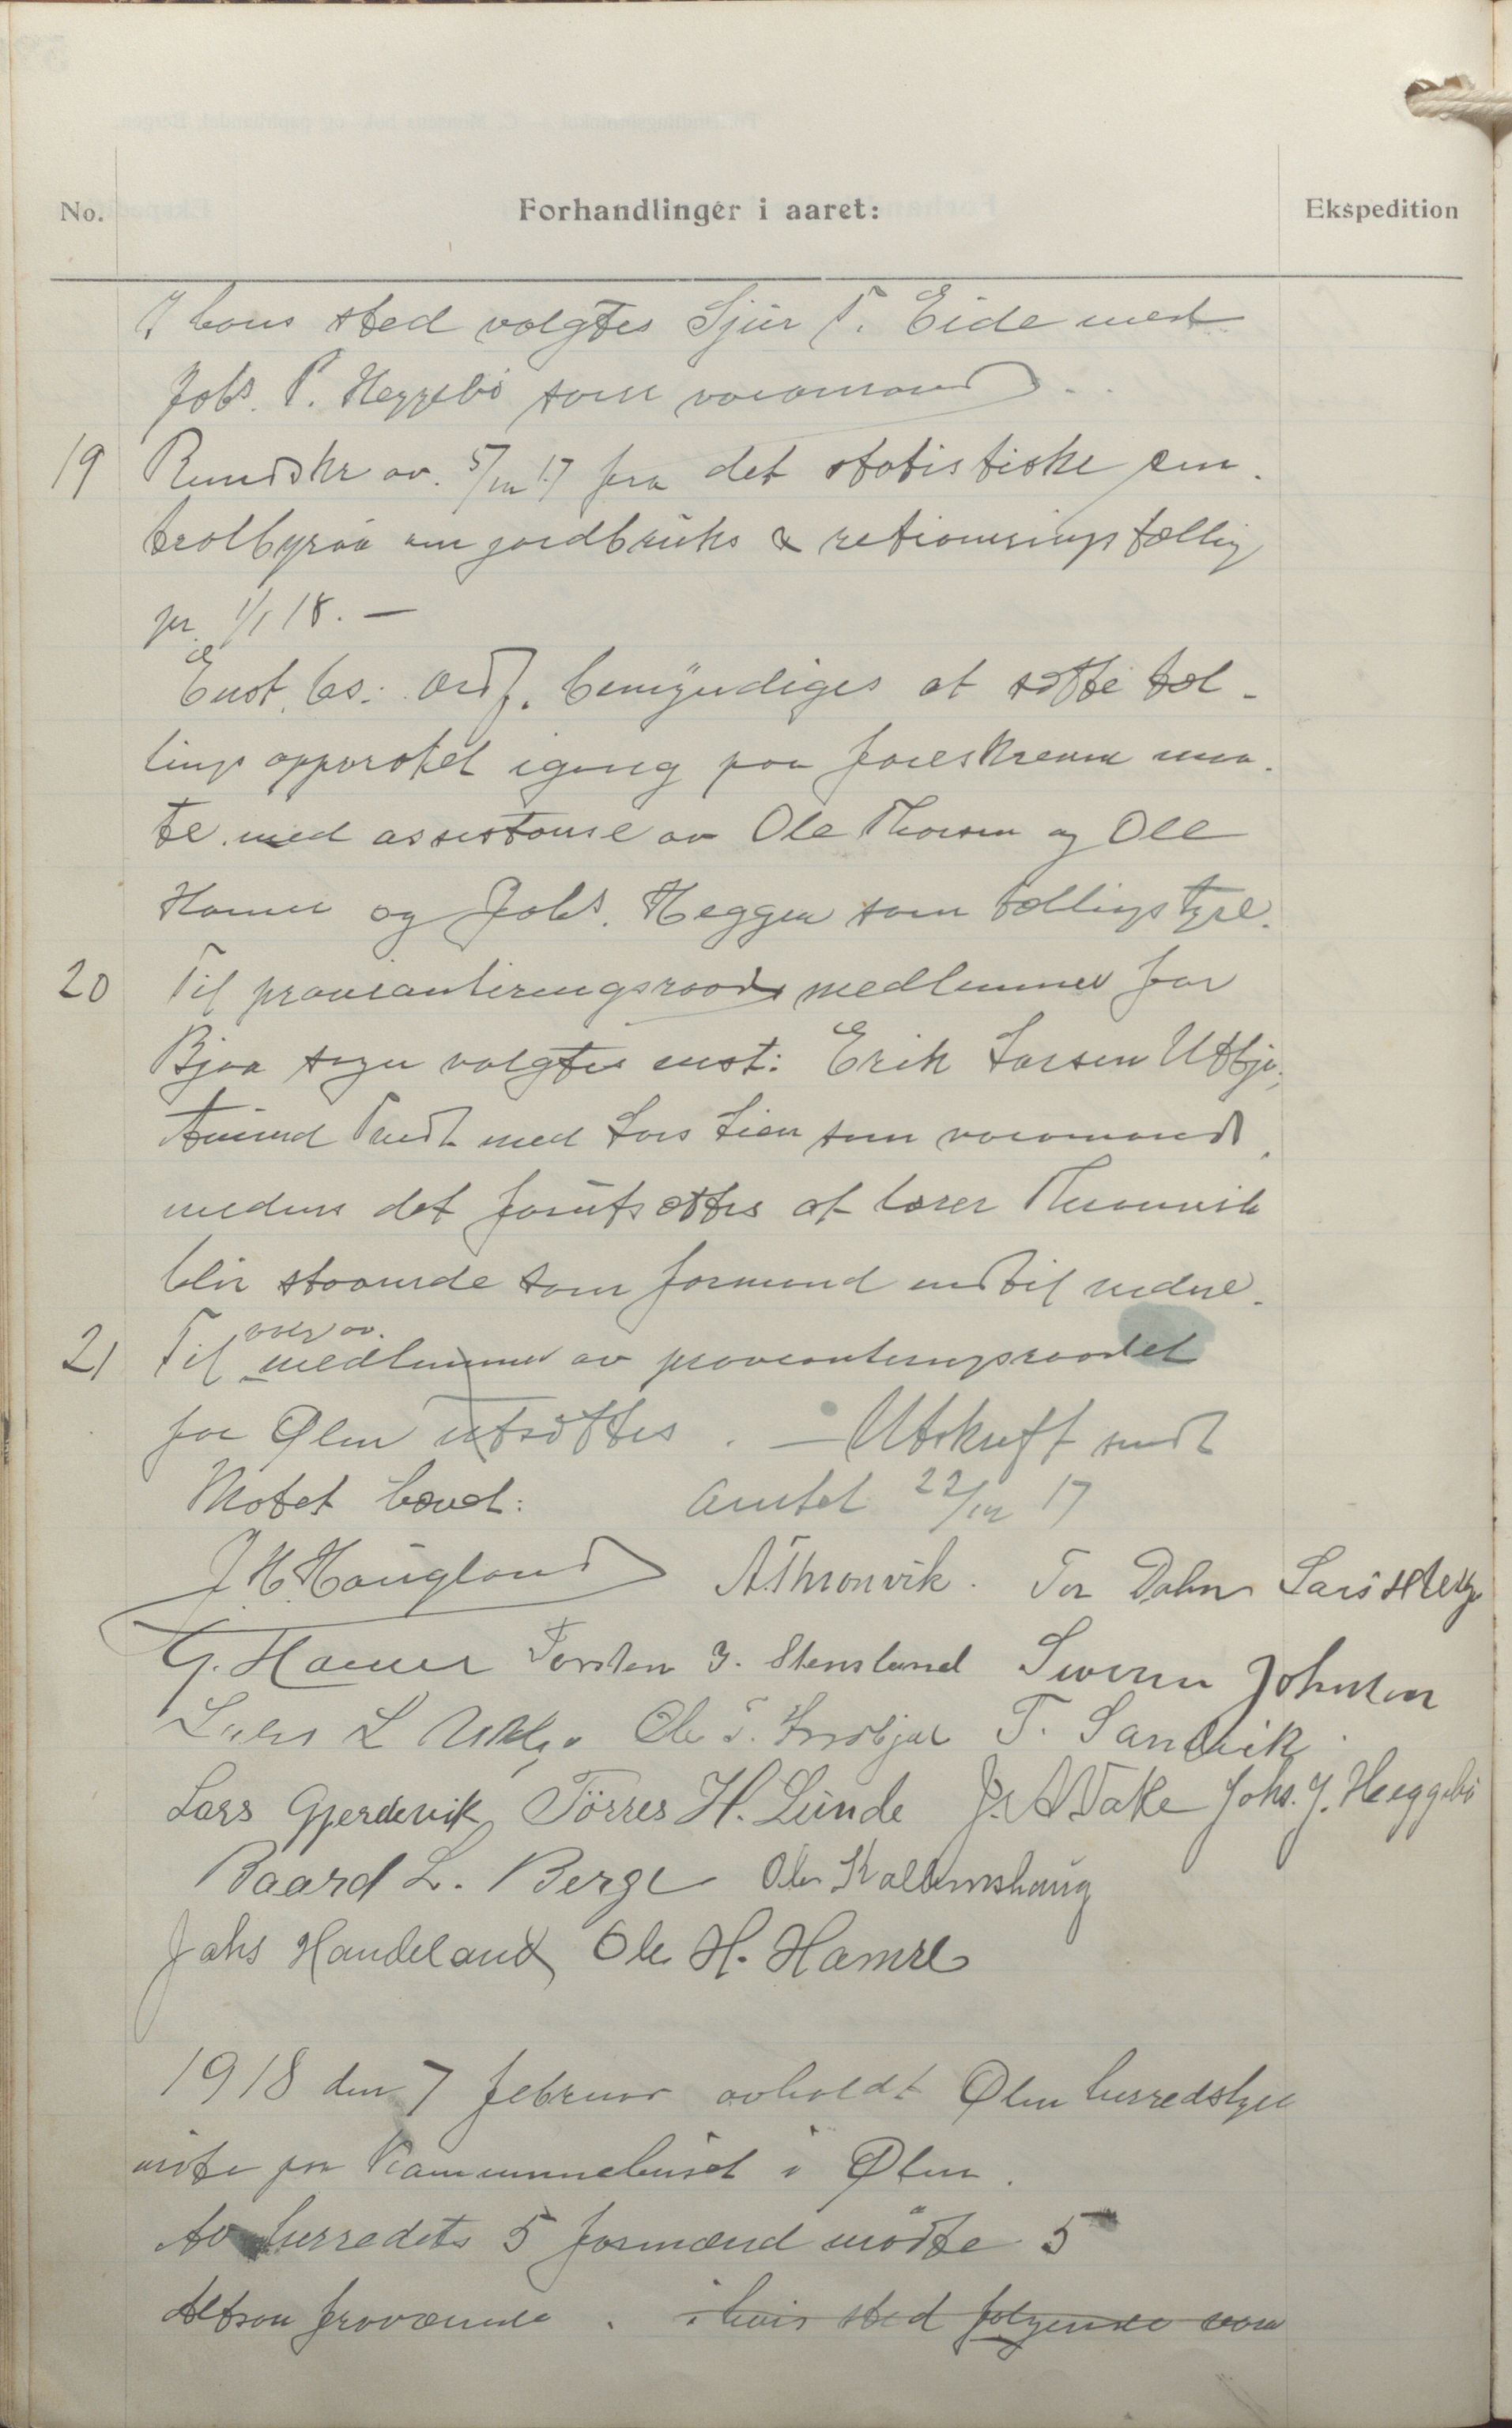 No.
Forhandlinger i aaret:
Ekspedition
I hans sted valgtes Sjur T. Eide med
Johs. P. Heggebø som varamand.
19 Rundskr av. 5/12 17 fra det statistiske cen-
tralbyraa om jordbruks & rationeringstælling
pr. 1/1 18. —
Enst. bes: Ordf. bemyndiges at sætte tæl-
lings apparatet igang paa foreskreven maa-
te med assistanse av Ole Thorsen og Ole
Hamre og Johs. Heggen som tællingstyre.
20 Til provianteringsraads medlemmer for
Bjoa sogn valgtes enst: Erik Larsen Utbjo,
Amund Tendt med Lars Lien som varamand,
medens det forutsættes at lærer Thronvik
blir staaende som formand indtil videre.
21 Til valg av
medlemmer av provianteringsraadet
for Ølen utsættes. — Utskrift sendt
Møtet hævet: Amtet 22/12 17
J. H. Haugland A Thronvik. Tor Dahn Lars Berge
G. Hamre Torsten J. Stensland Sweren Johnsen
Lars L Utbjo Ole T. Innbjoe T. Sandvik
Lars Gjerdevik Törres H. Lunde J. A Vake Johs. J. Heggebö
Baard L. Berge Ole Kallemshaug
Johs Handeland Ole H. Hamre
1918 den 7 februar avholdt Ølen herredstyre
møte paa Kommunehuset i Ølen.
Av herredets 5 formænd mødte 5
Altsaa fraværende . i hvis sted følgende vara